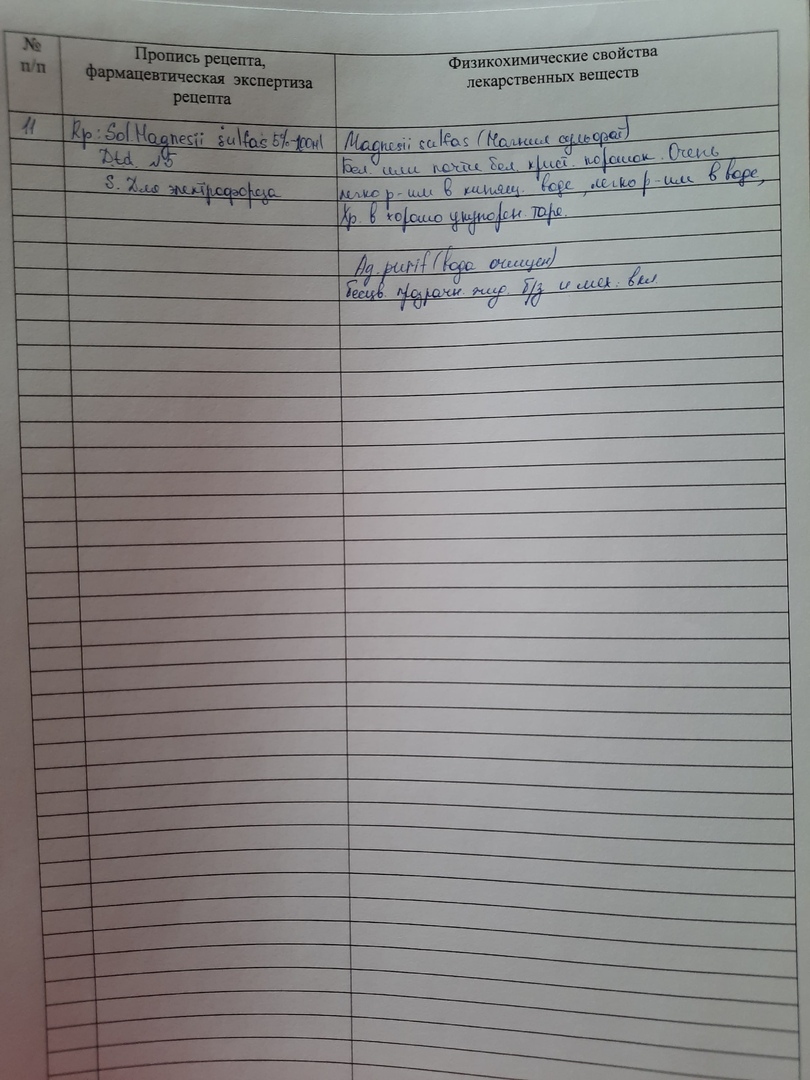 №
п/п
Пропись рецепта,
фармацевтическая экспертиза
рецепта
Физикохимические свойства
лекарственных веществ
11
Rp: Sol. Magnesii sulfas 5%-100ml
Dtd. №5
S. Для электрофореза
Magnesii sulfas (Магния сульфат)
Бел. или почти бел. крист. порошок. Очень
легко р-им в кипящ. воде, легко р-им в воде,
Хр. в хорошо укупорен. таре.
Aq. purif (вода очищен)
бесцв. прозрачн. жид. б/з и мех. вкл.